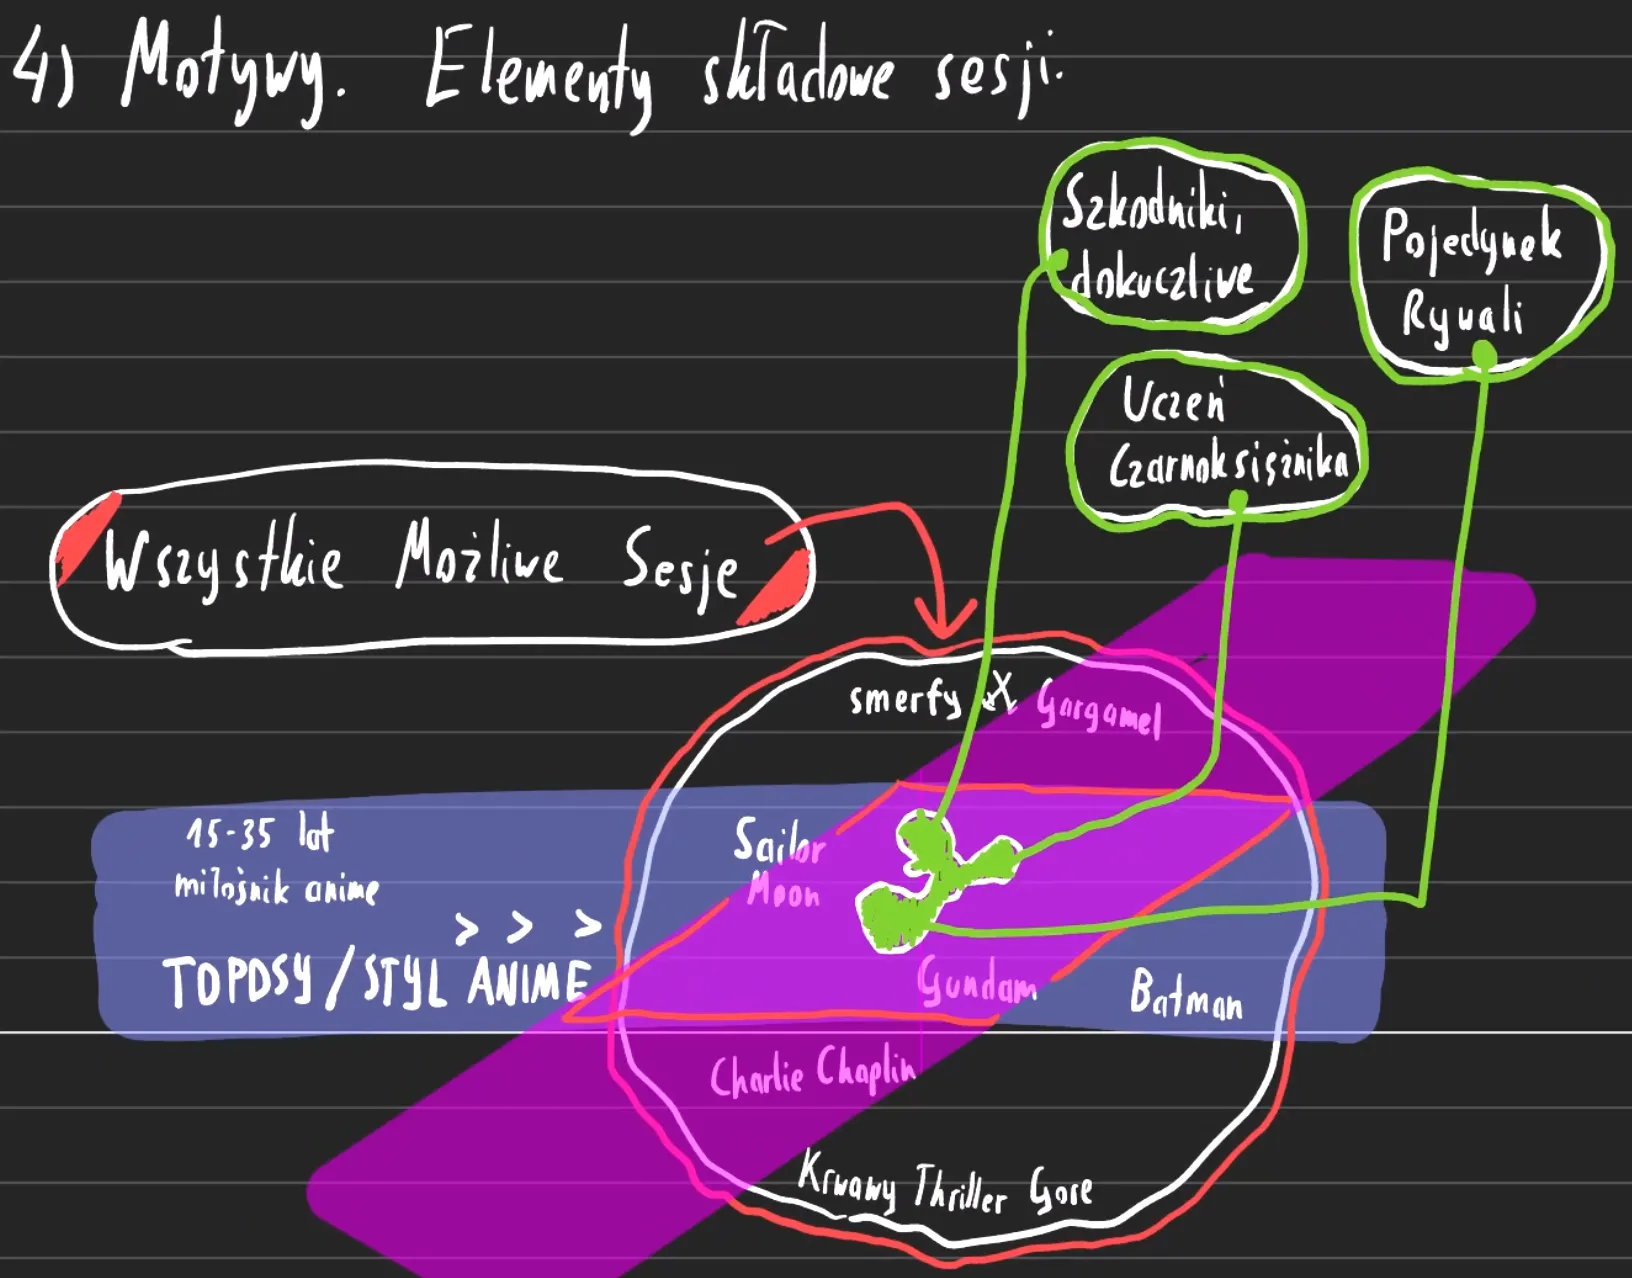 4) Motywy. Elementy składowe sesji.
Szkodniki,
dokuczliwe
Pojedynek
Rywali
Uczeń
Czarnoksiężnika
Wszystkie Możliwe Sesje
smerfy X Gargamel
15-35 lat
miłośnik anime
> > >
TOPOSY/STYL ANIME
Sailor
Moon
Gundam
Batman
Charlie Chaplin
Krwawy Thriller Gore